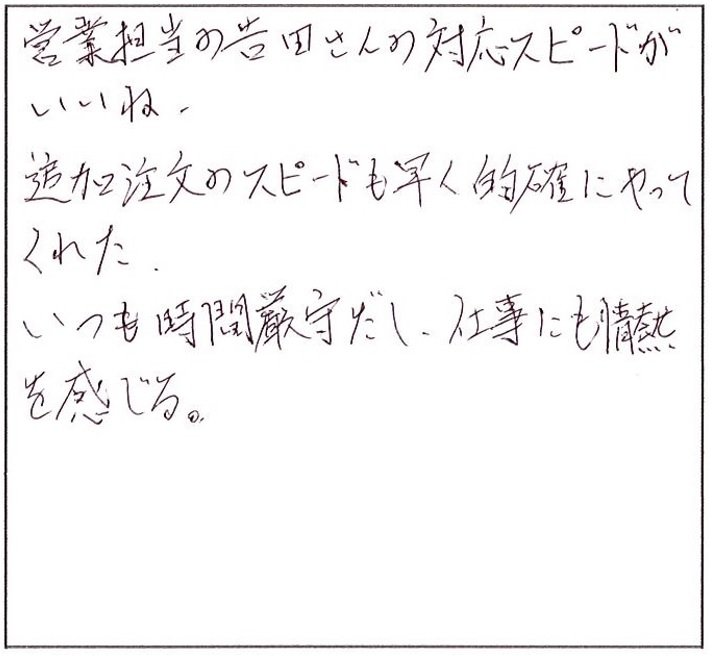 営業担当の吉田さんの対応スピードが
いいね、
追加注文のスピードも早く的確にやって
くれた.
いつも時間厳守だし、仕事にも情熱
を感じる。